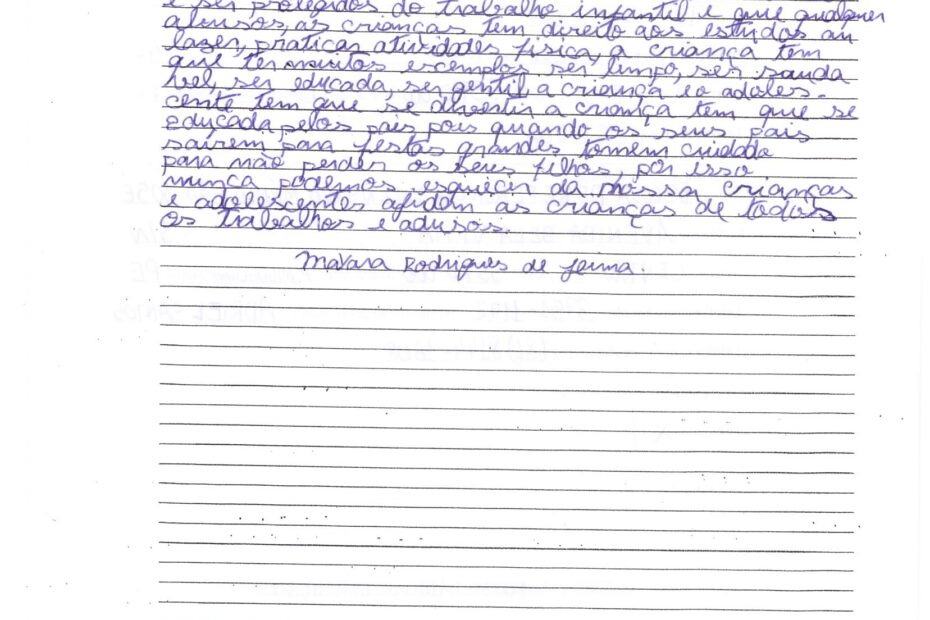 e ser protegidos do trabalho infantil e que qualquer
abusos, as crianças tem direito aos estudos au
lazer, praticar atividades física, a criança tem
que ter muitos escemplos ser limpo, ser sauda
vel, ser educada, ser gentil, a criança e o adoles-
cente tem que se divertir a criança tem que se
educada pelos pais pois quando os seus pais
sairem para festas grandes tomem cuidado
para não perder os seus filhos, por isso
nunca podemos esquecer da nossa crianças
e adolescentes ajudam as crianças de todos
os trabalhos e adusos.
Rodrigues de